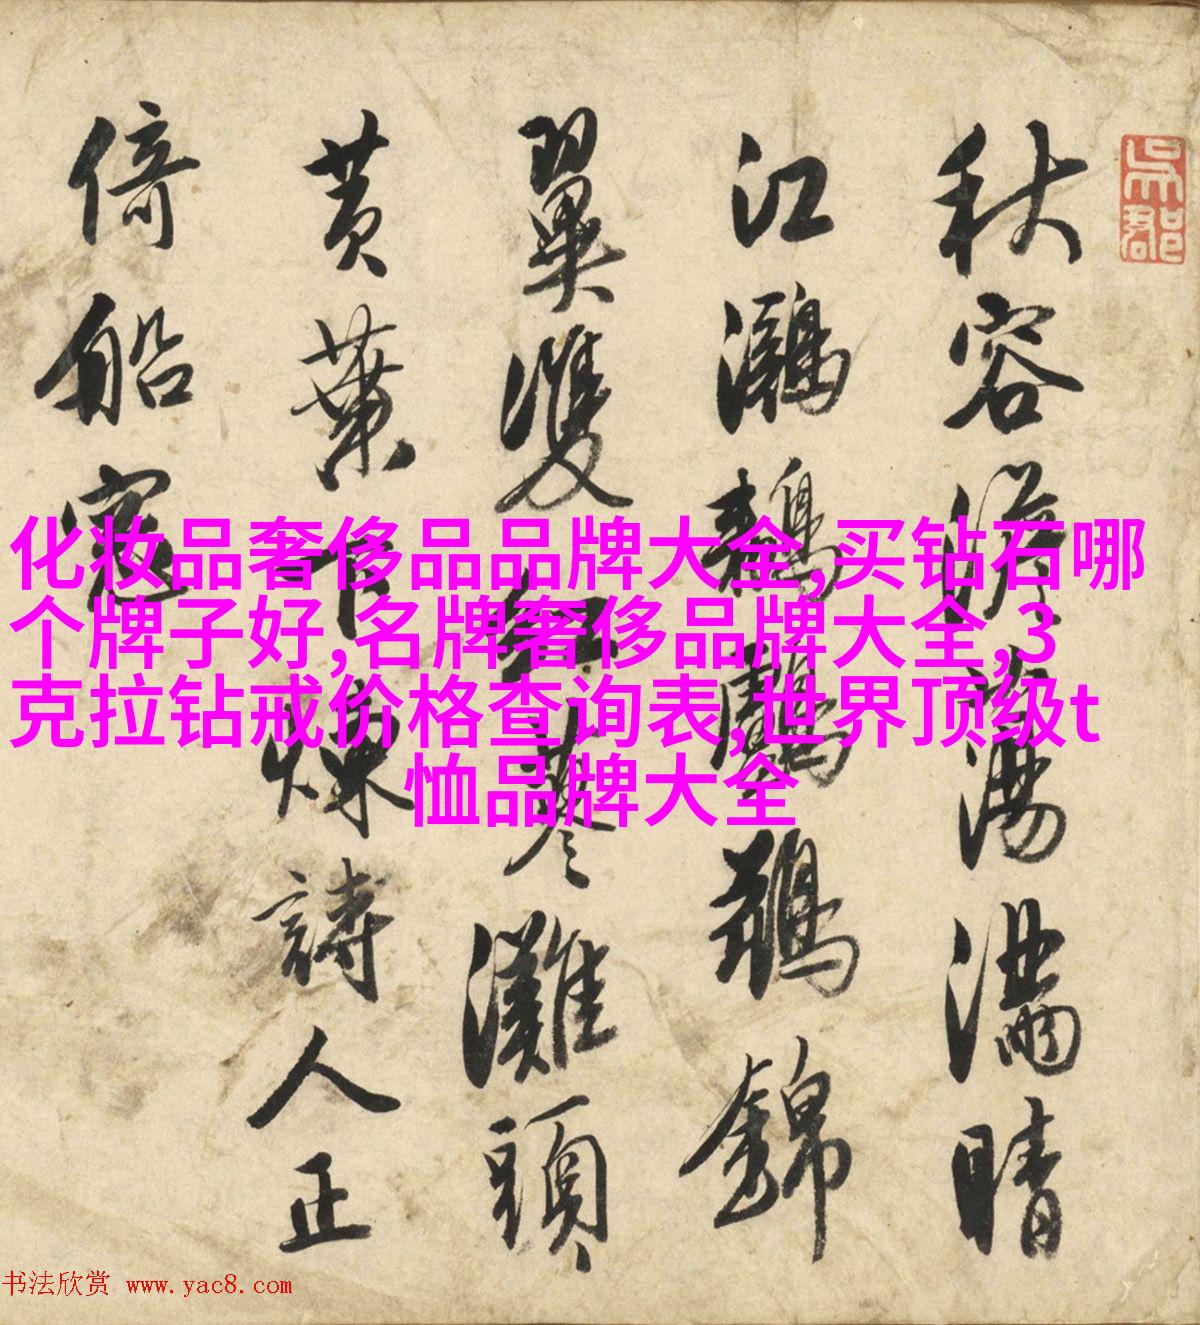 吳郡
秋容澹蕩滿晴
江鸂鶒鸕鶿錦
翼雙紅蓼灘頭
黄葉下煉詩人正
倚船窓
化妆品奢侈品品牌大全,买钻石哪
个牌子好,名牌奢侈品牌大全,3
克拉钻戒价格查询表,世界顶级t
恤品牌大全
书法欣赏 www.yac8.com